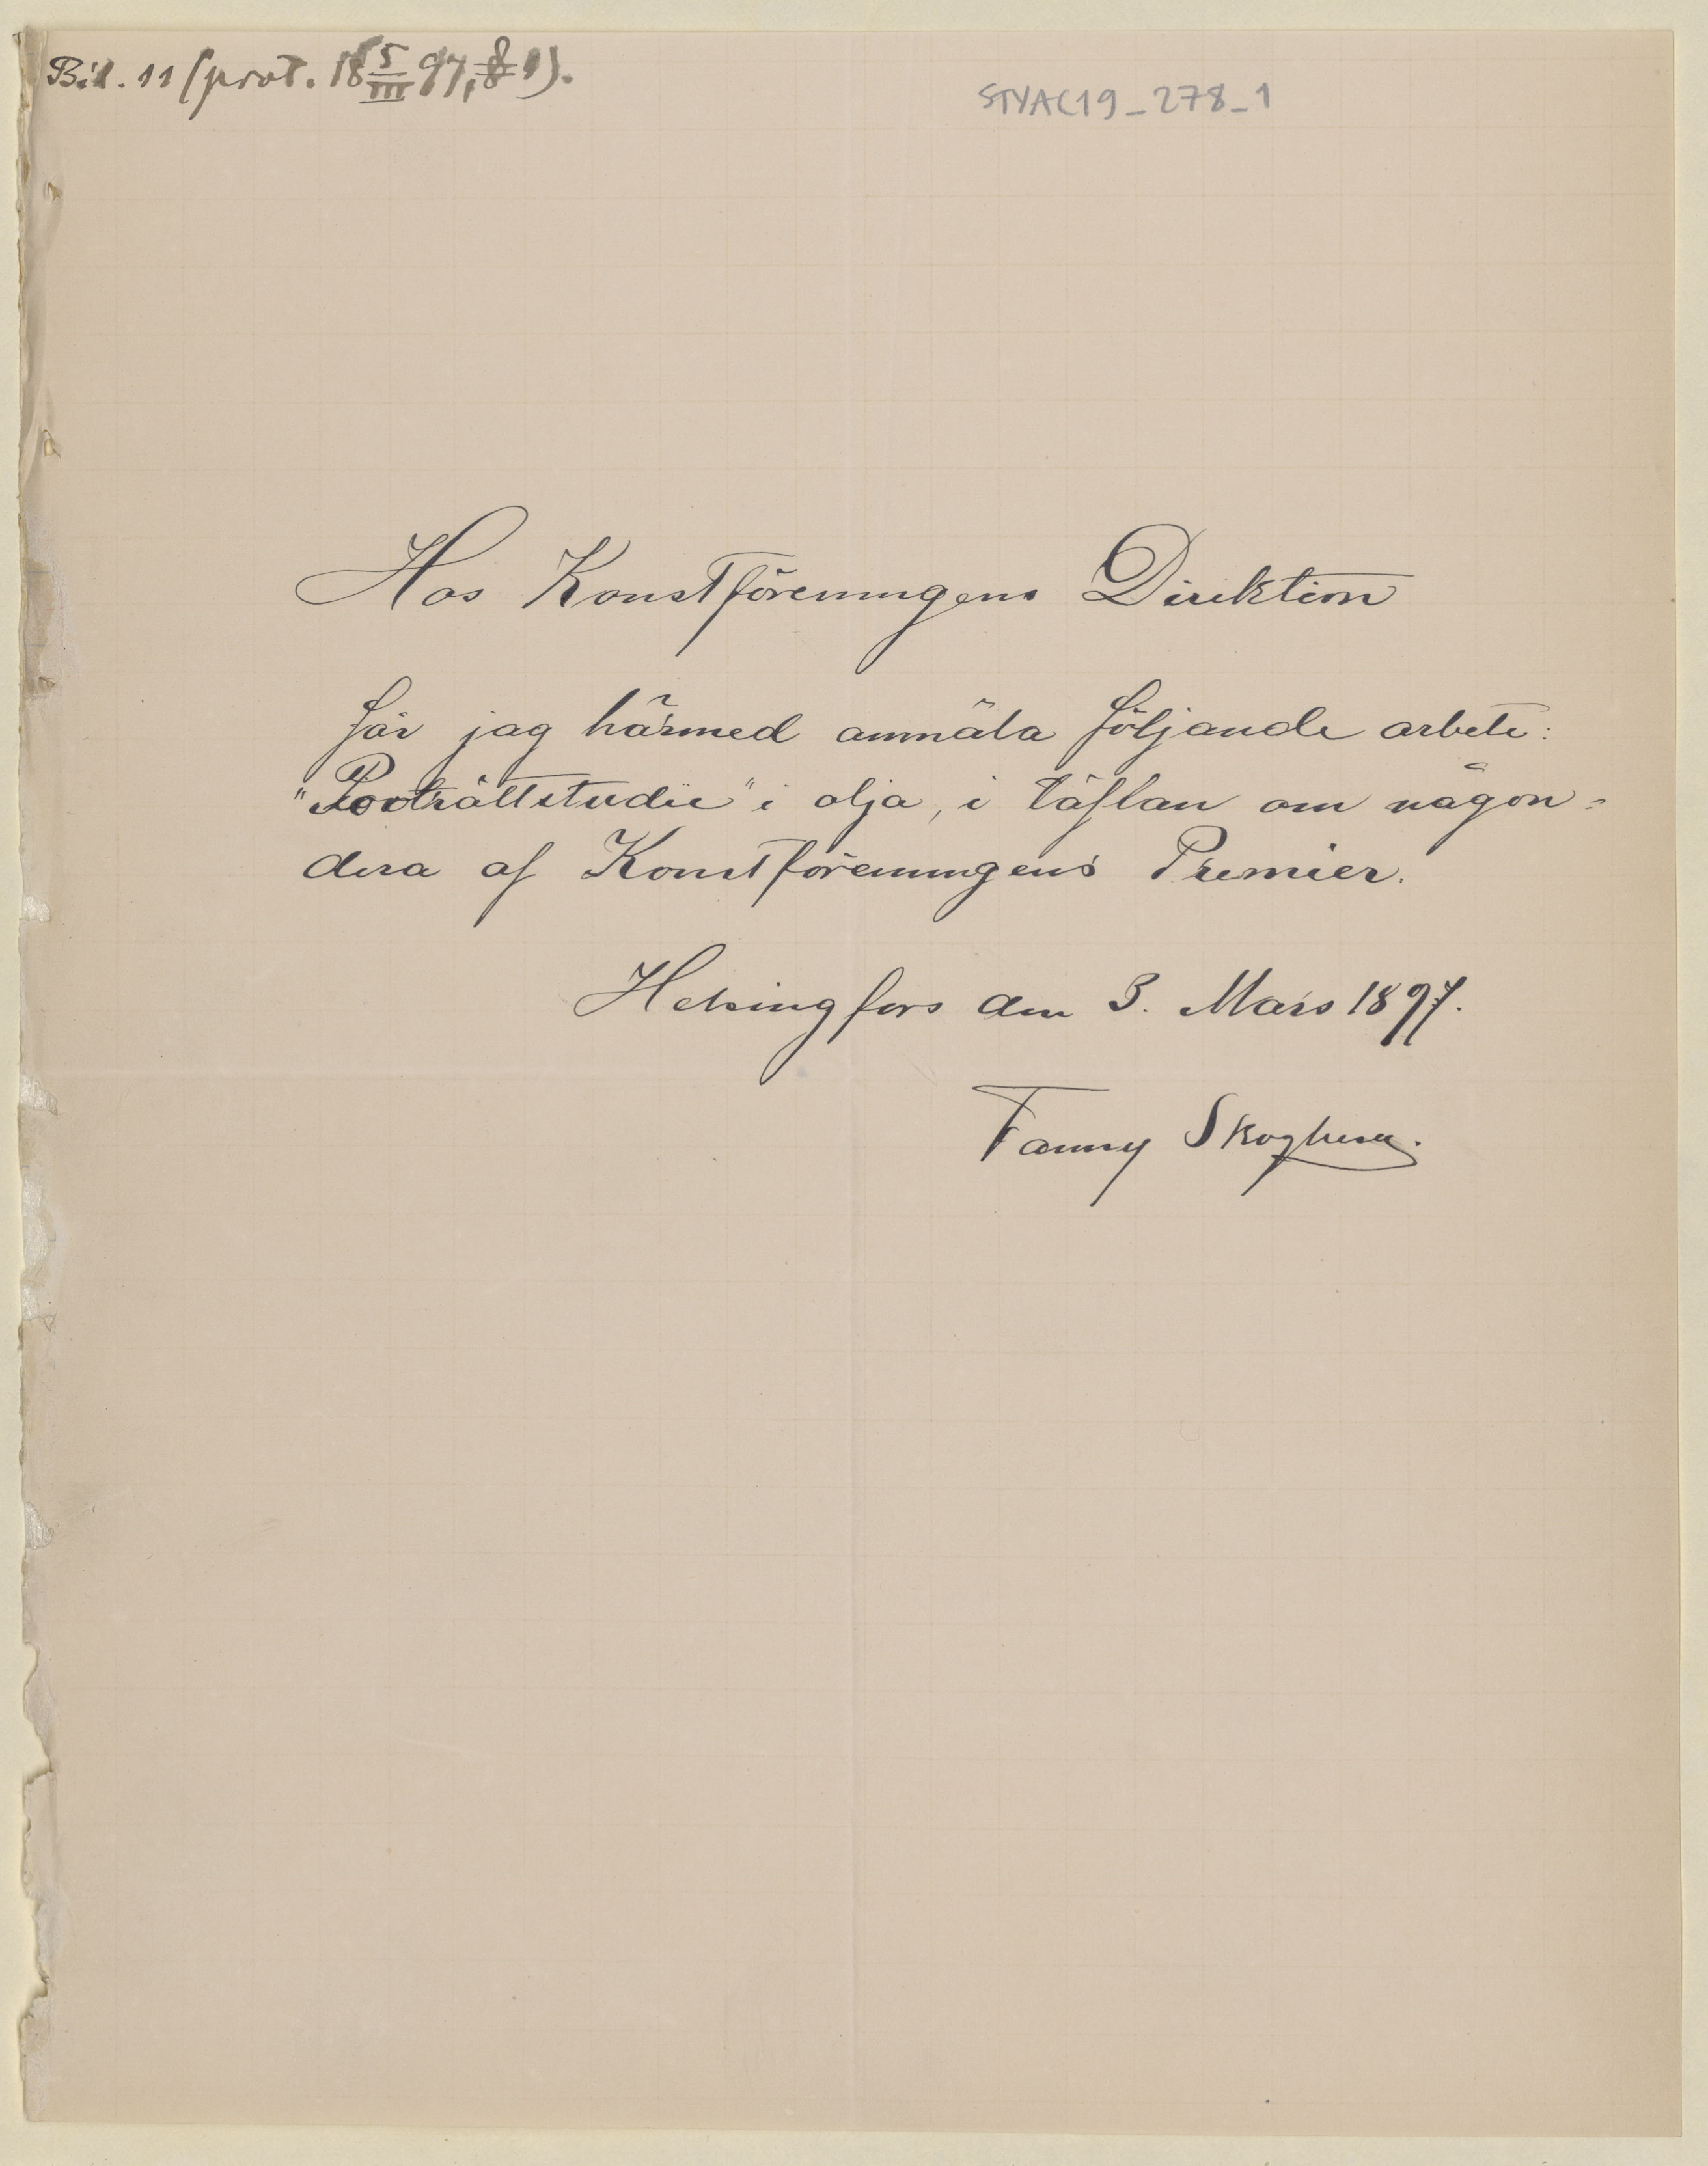 Bil. 11 (prot. 18 5/III 97, § 1).
STYAC19_278_1
Hos Konstföreningens Direktion
får jag härmed anmäla följande arbete:
"Porträttstudie" i olja, i täflan om någon=
dera af Konstföreningens Premier.
Helsingfors den 3. Mars 1897.
Fanny